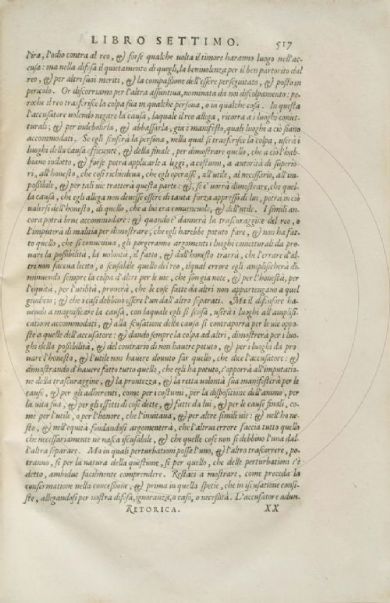 LIBRO SETTIMO. 517
l'ira, l'odio contra al reo, & forse qualche volta il timore haranno luogo nell'accu
sa: ma nella difesa il quietamento di quegli, la benivolenza per il ben partorito dal
reo, & per altri suoi meriti, & la compassione dell'essere perseguitato, & posto in
pericolo. Or discorriamo per l'altra assuntiva, nominata da noi discolpamento; per
roche il reo trasferisce la colpa sua in qualche persona, o in qualche cosa. In questa
l'accusatore volendo negare la causa, laquale il reo allega, ricorra a i luoghi conietturali;
& per indebolirla, & abbassarla, gia è manifesto, quali luoghi a ciò siano
accommodati. Se egli finserà la persona, nella qual si trasferisse la colpa, userà i
luoghi della causa efficiente, & della finale, per dimostrare quello, che a ciò l'habbiano
indotto, & forse potrà applicarle a leggi, a costumi, a autorità di superiori,
all'honesto, che così richiedeva, che egli operasse, all'utile, al necessario, all'impossibile,
& per tali vie trattera questa parte: &, se e' vorrà dimostrare, che quella
causa, che egli allega non dovesse essere di tanta forza appresso di lui, potrà in ciò
valersi dell'honesto, di quello, che a lui era conveniente, & dell'utile. I simili ancora
potrà bene accommodare: & quando e' dannerà la trascuraggine del reo, &
l'imputerà di malitia per dimostrare, che egli harebbe potuto fare, & non ha fatto
quello, che si conveniva, gli porgeranno argomenti i luoghi conietturali da provare
la possibilità, la volontà, il fatto, & dall'honesto trarrà, che l'errore d'altri
non faccia lecito, o scusabile quello del reo, ilqual errore egli amplificherà diminuendo
sempre la colpa d'altri per le vie, che son gia note, & per l'honestà, per
l'equità, per l'utilità, proverà, che le cose fatte da altri non appartengano a quel
giudicio; & che i casi debbono essere l'un dall'altro separati. Ma il difensore havendo
a magnificare la causa, con laquale egli si scusa, userà i luoghi all'amplification
accommodati, & alla scusation della causa si contrapporrà per le vie opposte
a quelle dell'accusatore: & dando sempre la colpa ad altri, dimostrerà per i luoghi
della possibilità, & del contrario di non havere potuto, & per i luoghi da provare
l'honesto, & l'utile non havere dovuto far quello, che dice l'accusatore: &
dimostrando d'havere fatto tutto quello, che egli ha potuto, s'opporrà all'imputatione
della trascuraggine, & la prontezza, & la retta volontà sua manifesterà per le
cause, & per gli adherenti, come per i costumi, per la dispositione dell'animo, per
la vita sua, & per gli effetti di cose dette, & fatte da lui, & per le cause finali, come
per l'utile, o per l'honore, che l'invitava, & per altre simili vie: & nell'honesto,
& nell'equità fondandosi argomenterà, che l'altrui errore faccia tutto quello
che necessariamente ne nasca iscusabile, & che quelle cose non si debbono l'una dall'altra
separare. Ma in quali perturbationi possa l'uno, & l'altro trascorrere, potranno,
sì per la natura della quistione, sì per quello, che delle perturbationi s'è
detto, ambidue facilmente comprendere. Restaci a mostrare, come proceda la
confirmatione nella concessione, & prima in quella spetie, che in iscusatione consiste,
allegandosi per nostra difesa, ignoranza, o caso, o necessità. L'accusatore adun-
RETORICA. XX